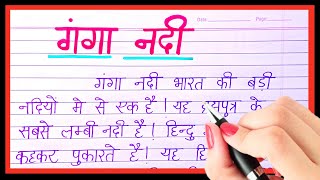 Date
Page
गंगा नदी
गंगा नदी भारत की बड़ी
नदियो मे से एक है। यह के
सबसे लम्बी नदी है। हिन्दु
कहकर पुकारते है। यह